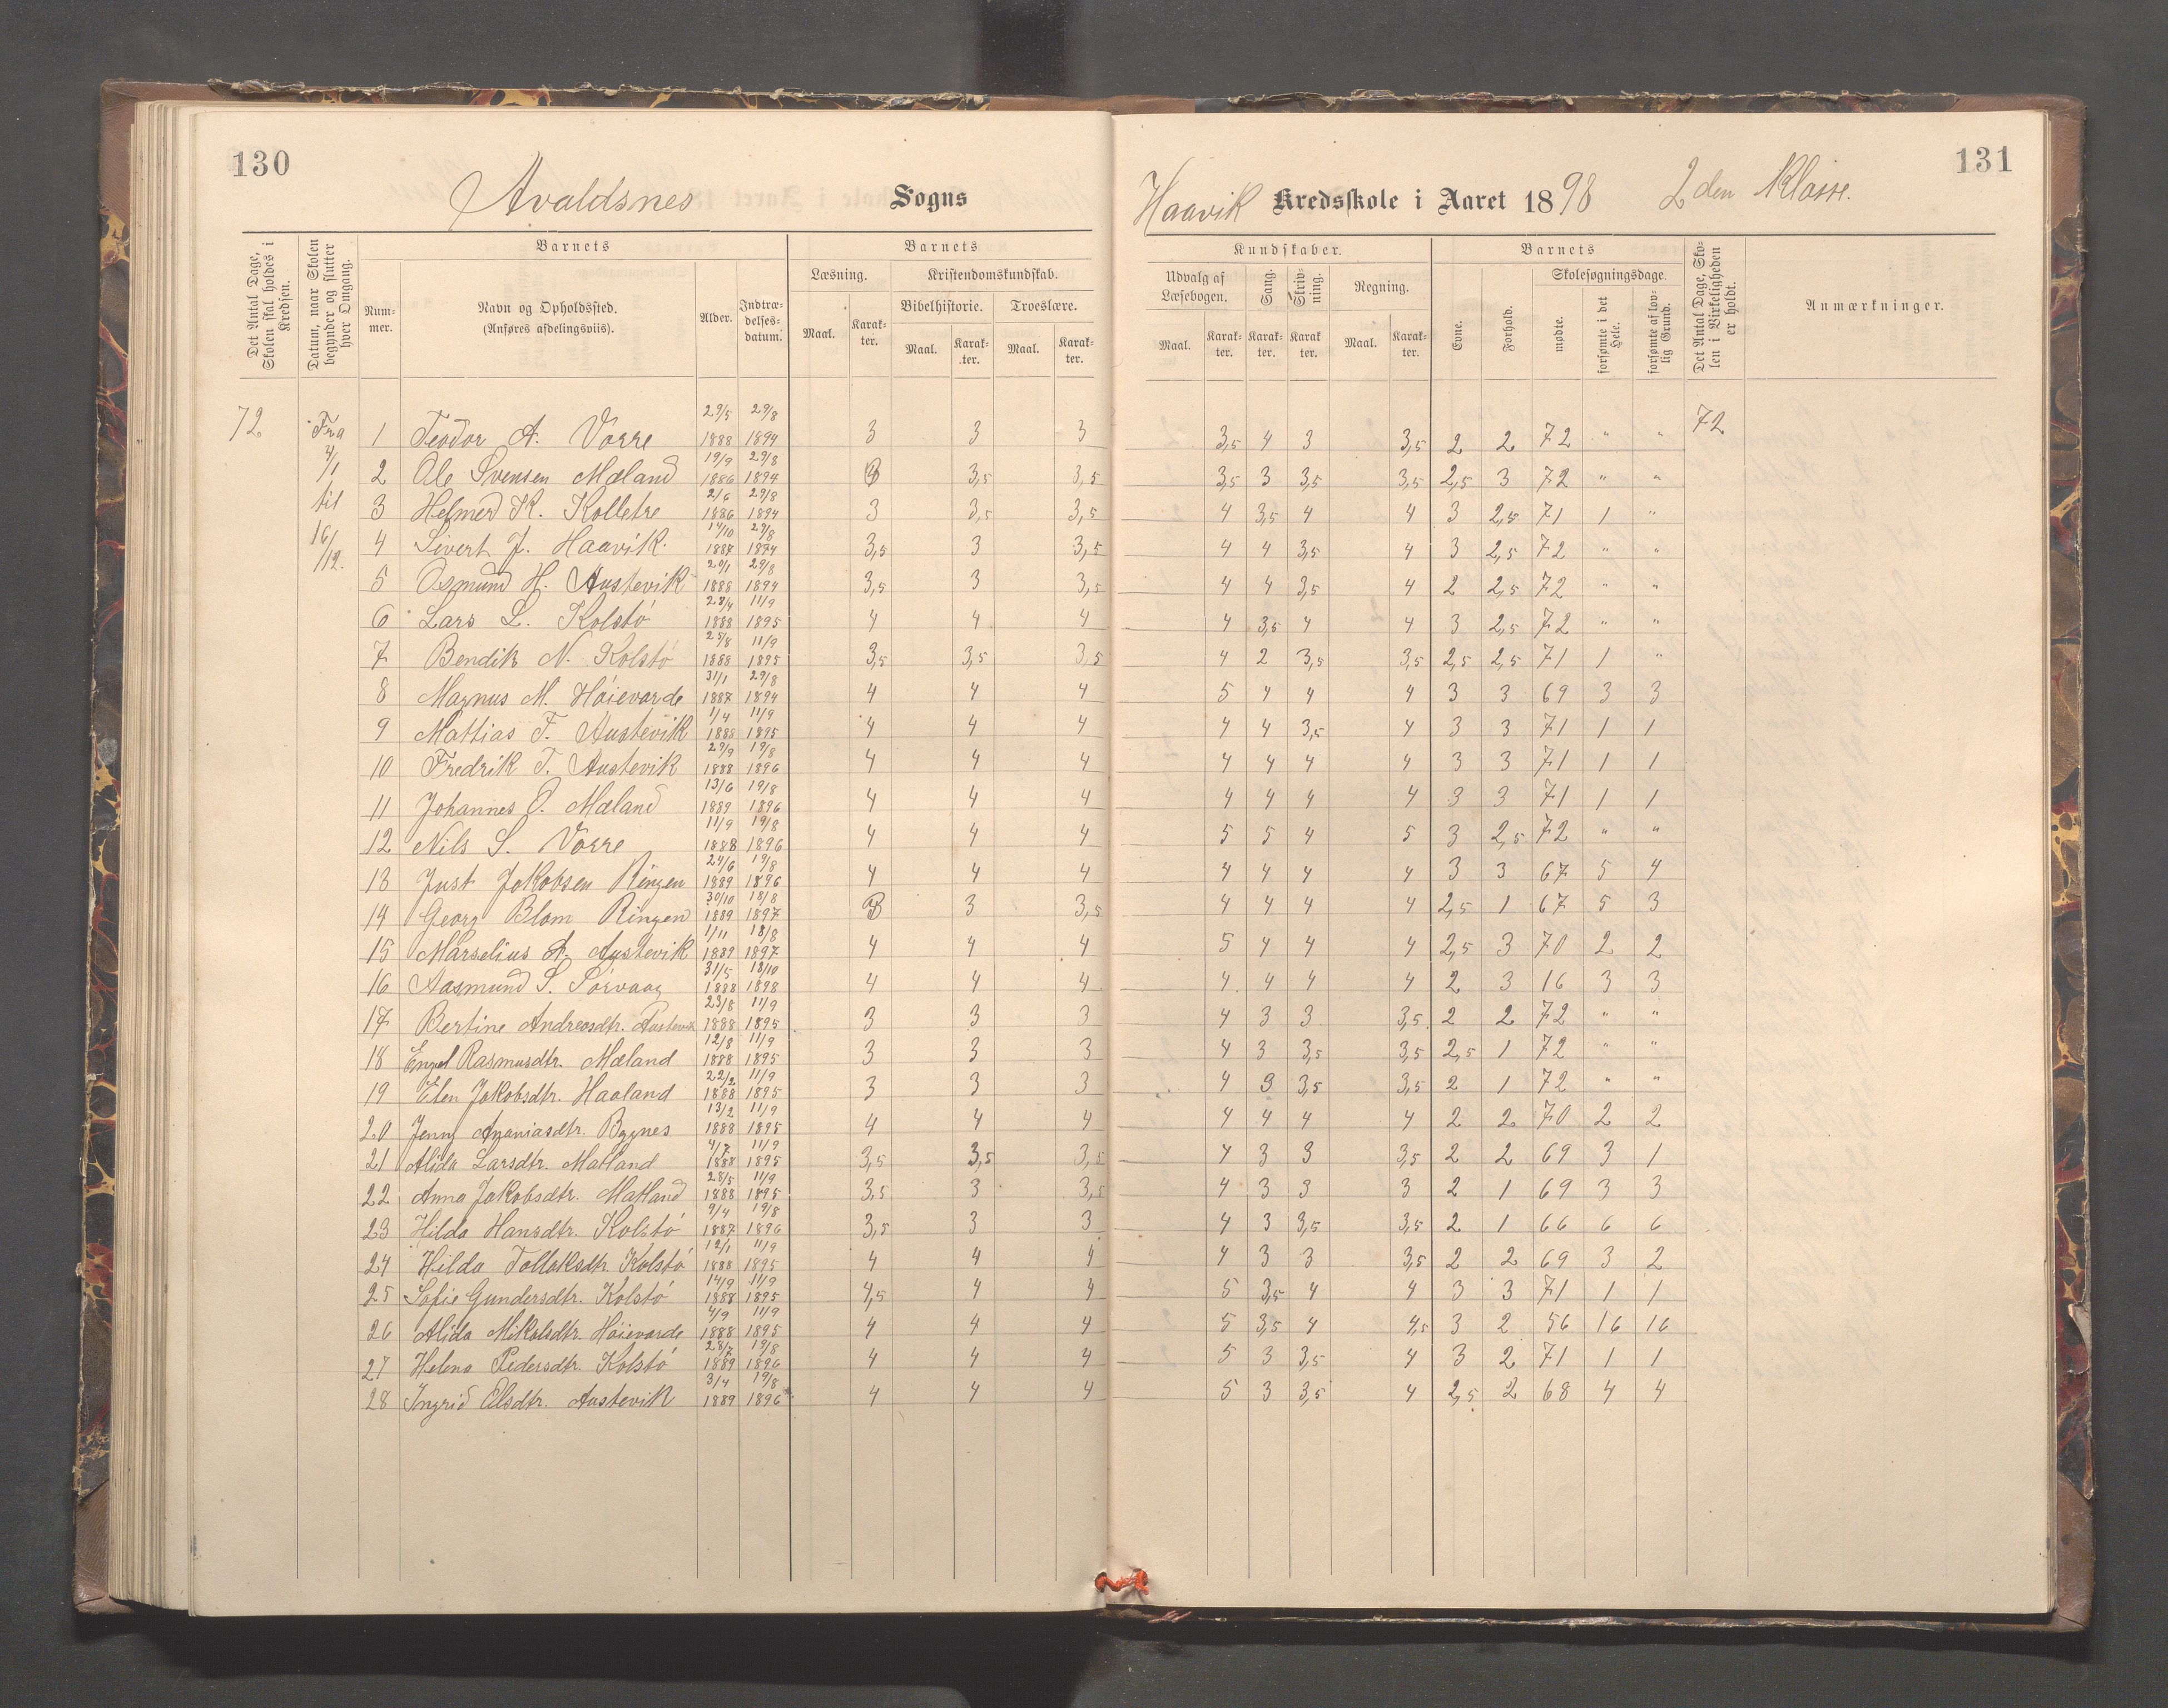 130
Avaldsnes Sogns
Det Antal Dage, Skolen skal holdes i Kredsen.
Datum, naar Skolen begynder og slutter hver Omgang.
Barnets
Num-mer.
Navn og Opholdssted.
(Anføres afdelingsviis).
Alder.
Indtræ-delses-datum.
Barnets
Læsning.
Kristendomskundskab.
Bibelhistorie.
Troeslære.
Maal. Karak-ter. Maal. Karak-ter. Maal. Karak-ter.
131
Haavik Kredsskole i Aaret 1898 2den Klasse.
Kundskaber.
Udvalg af Læsebogen.
Sang.
Skriv-ning.
Regning.
Maal. Karak-ter. Karak-ter. Karak ter. Maal. Karak-ter.
Barnets
Evne.
Forhold.
Skolesøgningsdage.
mødte.
forsømte i det Hele.
forsømte af lov-lig Grund.
Det Antal Dage, Sko-len i Virkeligheden er holdt.
Anmærkninger.
72 Fra 4/1 til 16/12. 72
1 Teodor A. Vorre 29/5 1888 29/8 1894 3 3 3 3,5 4 3 3,5 2 2 72 " "
2 Ole Svensen Mæland 19/9 1886 29/8 1894 3,5 3,5 3,5 3 3,5 3,5 2,5 3 72 " "
3 Helmer K. Kolletre 2/6 1886 29/8 1894 3 3,5 3,5 4 3,5 4 4 3 2,5 71 1 "
4 Sivert J. Haavik. 14/10 1887 29/8 1894 3,5 3 3,5 4 4 3,5 4 3 2,5 72 " "
5 Osmund H. Austevik 20/1 1888 29/8 1894 3,5 3 3,5 4 4 3,5 4 2 2,5 72 " "
6 Lars L. Kolstó 28/4 1888 11/9 1895 4 4 4 4 3,5 4 4 3 2,5 72 " "
7 Bendik N. Kolstó 25/8 1888 11/9 1895 3,5 3,5 3,5 4 2 3,5 3,5 2,5 2,5 71 1 "
8 Magnus M. Hóievarde 31/1 1887 29/8 1894 4 4 4 5 4 4 4 3 3 69 3 3
9 Mattias F. Austevik 1/4 1888 11/9 1895 4 4 4 4 4 3,5 4 3 3 71 1 1
10 Fredrik T. Austevik 29/9 1888 19/8 1896 4 4 4 4 4 4 4 3 3 71 1 1
11 Johannes O. Mæland 13/6 1889 19/8 1896 4 4 4 4 4 4 4 3 3 71 1 1
12 Nils S. Vorre 11/9 1888 19/8 1896 4 4 4 5 5 4 5 3 2,5 72 " "
13 Just Jakobsen Ringen 24/6 1889 19/8 1896 4 4 4 4 4 4 4 3 3 67 5 4
14 Georg Blom Ringen 30/10 1889 18/8 1897 3 3 3,5 4 4 4 4 2,5 1 67 5 3
15 Marselius A. Austevik 1/11 1889 18/8 1897 4 4 4 5 4 4 4 2,5 3 70 2 2
16 Aasmund S. Sórvaag 31/5 1888 18/10 1898 4 4 4 4 4 4 4 2 3 16 3 3
17 Bertine Andreasdtr. Austevik 23/8 1888 11/9 1895 3 3 3 4 3 3 3,5 2 2 72 " "
18 Engel Rasmusdtr. Mæland 12/8 1888 11/9 1895 3 3 3 4 3 3,5 3,5 2,5 1 72 " "
19 Elen Jakobsdtr. Haaland 22/2 1888 11/9 1895 3 3 3 4 3 3,5 3,5 2 1 72 " "
20 Jenny Ananiasdtr. Bygnes 13/2 1888 11/9 1895 4 4 4 4 4 4 4 2 2 70 2 2
21 Alida Larsdtr. Matland 4/7 1888 11/9 1895 3,5 3,5 3,5 4 3 3 3,5 2 2 69 3 1
22 Anna Jakobsdtr. Matland 28/5 1888 11/9 1895 3,5 3 3,5 4 3 3 3 2 1 69 3 3
23 Hilda Hansdtr. Kolstó 9/4 1887 19/8 1896 3,5 3 3 4 3 3,5 3,5 2 1 66 6 6
24 Hilda Tollaksdtr. Kolstó 12/1 1888 11/9 1895 4 4 4 4 3 3 3,5 2 2 69 3 2
25 Sofie Gundersdtr. Kolstó 14/9 1888 11/9 1895 4,5 4 4 5 3,5 4 4 3 3 71 1 1
26 Alida Mikalsdtr. Hóievarde 4/9 1888 11/9 1895 4 4 4 5 3,5 4 4,5 3 2 56 16 16
27 Helena Pedersdtr. Kolstó 28/7 1889 19/8 1896 4 4 4 5 3 3,5 4 3 2 71 1 1
28 Ingrid Olsdtr. Austevik 3/4 1889 19/8 1896 4 4 4 5 3 3,5 4 2,5 2 68 4 4